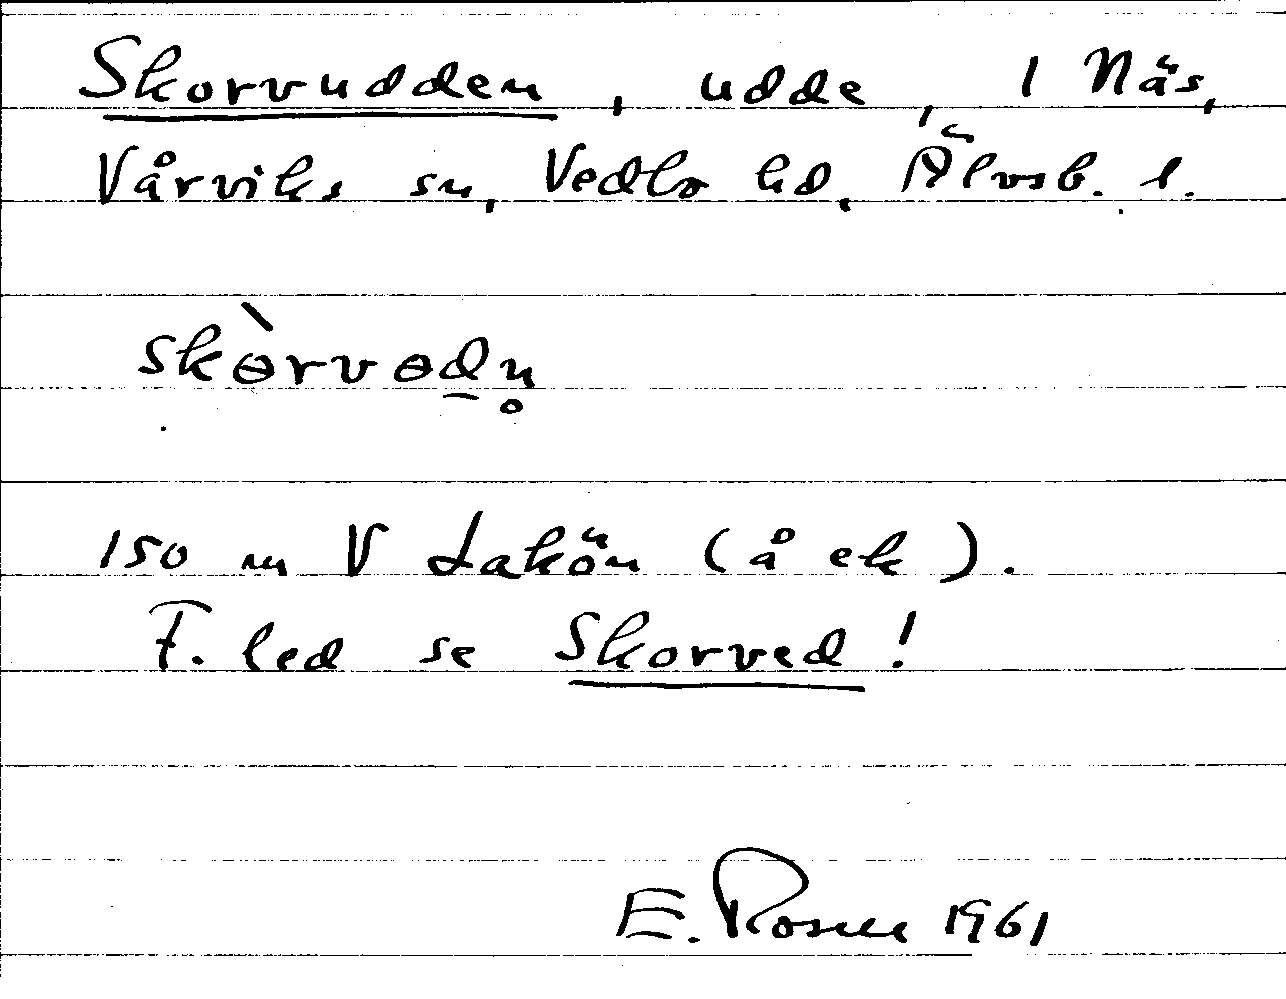 Skorvudden, udde, 1 Näs,
Vårviks sn, Vedbo hd, Älvsb. l.
skɵ̀rvɵd̲n̥
150 m V Lakön (å ek).
F. led se Skorved!
E. Rosell 1961